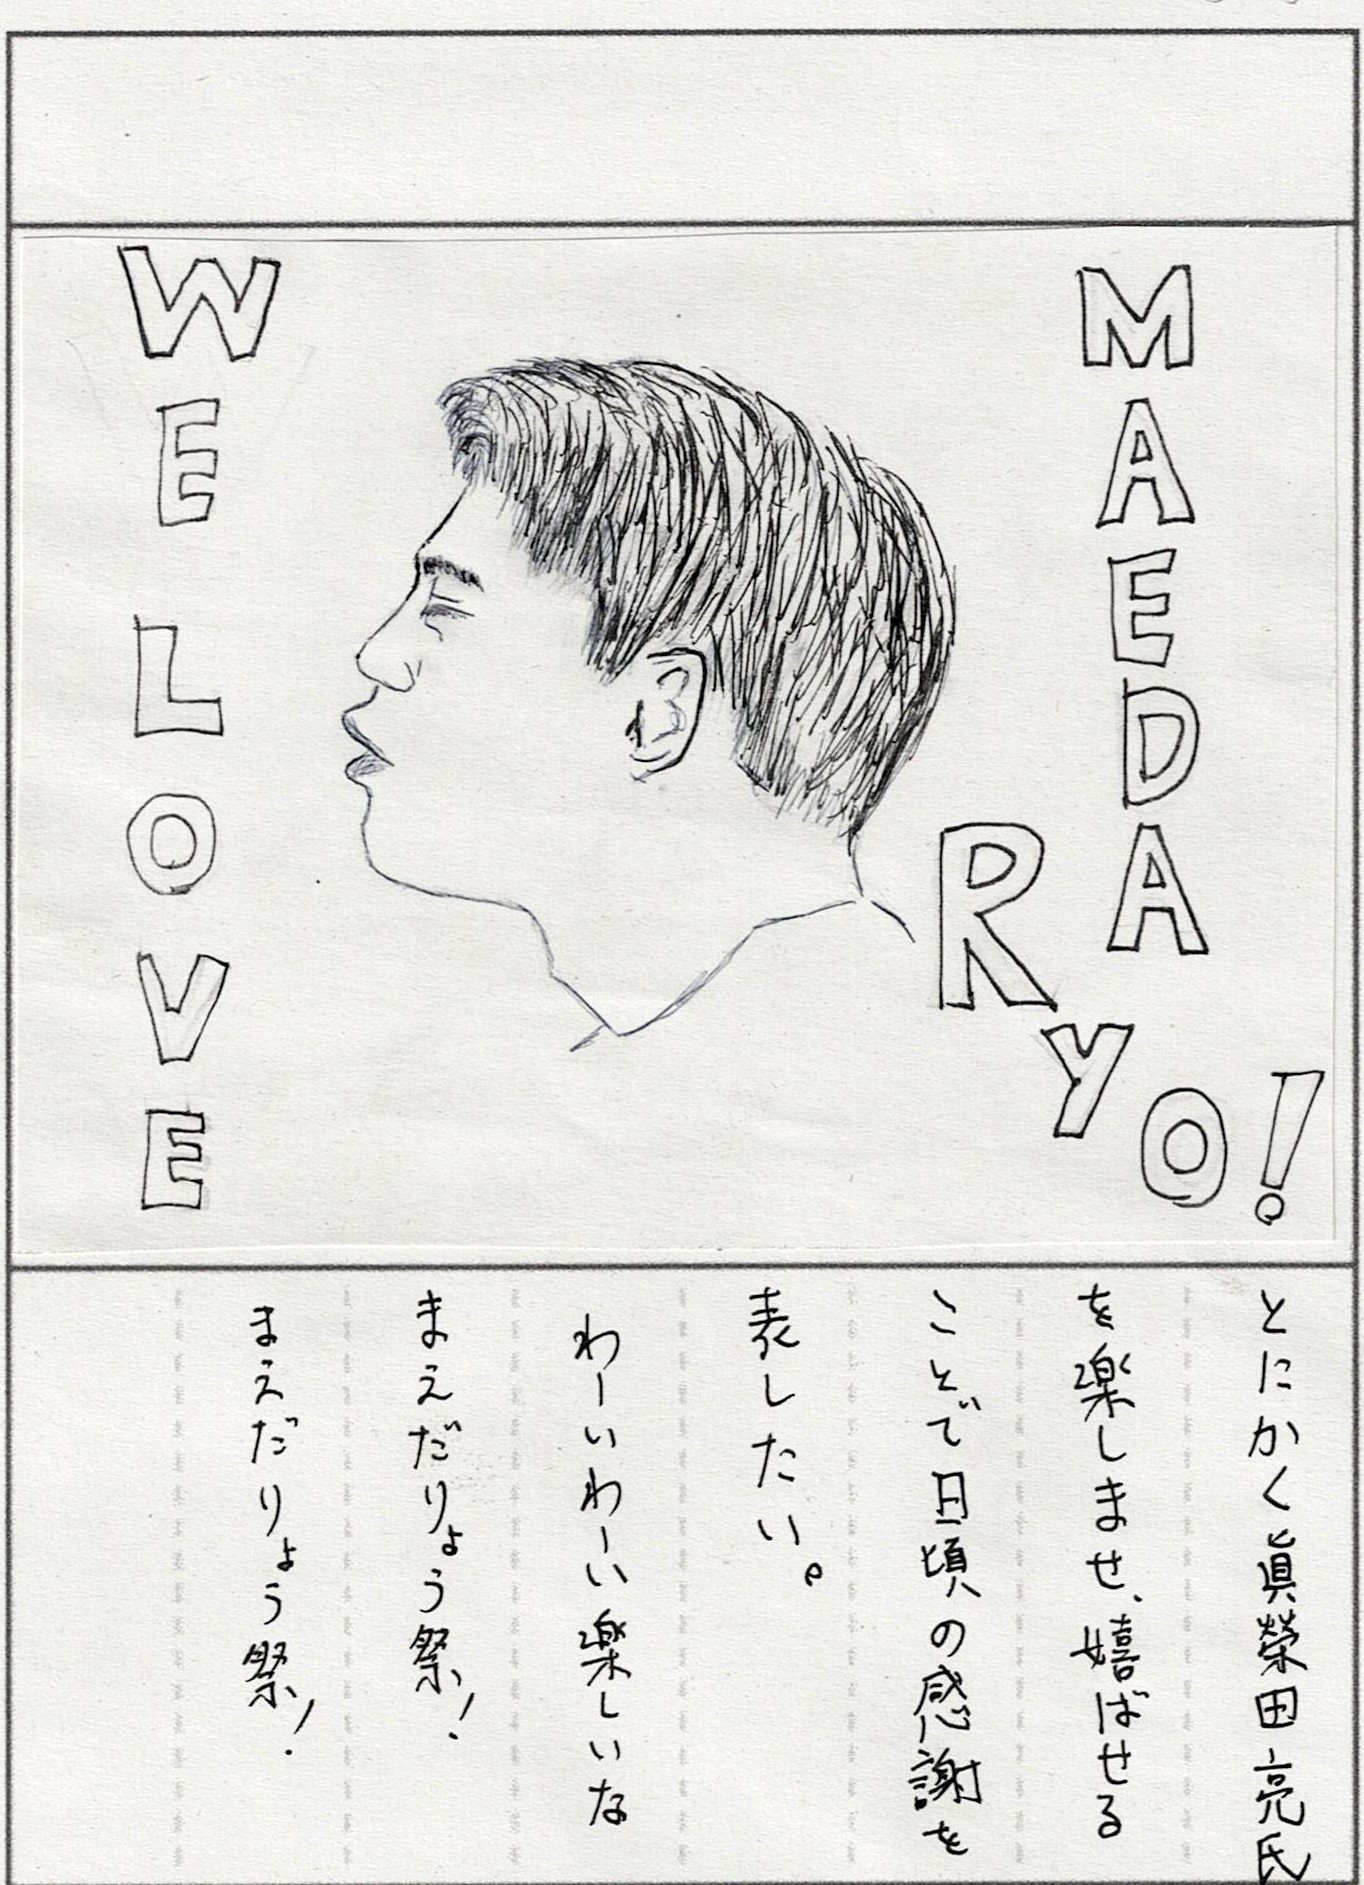 WE LOVE
MAEDA
RYO!
とにかく眞榮田亮氏
を楽しませ、嬉ばせる
ことで日頃の感謝を
表したい。
わーいわーい楽しいな
まえだりょう祭！
まえだりょう祭！